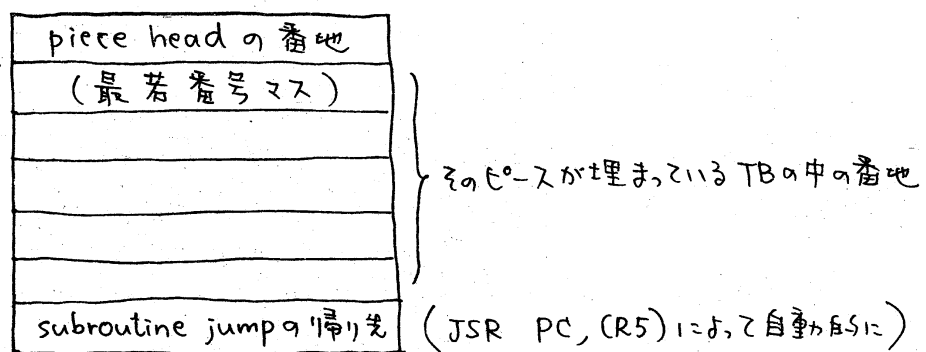 piece head の 番地
(最若番号マス)
そのピースが埋まっている TBの中の番地
subroutine jumpの帰り先 (JSR PC, (R5)によって自動的に)